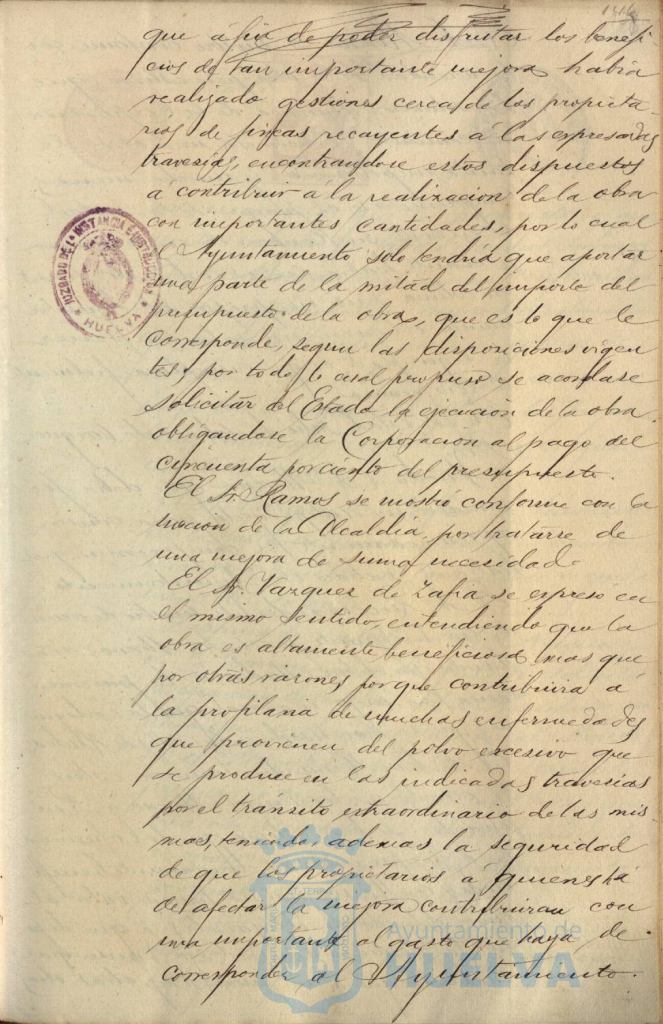 que á fin de poder disfrutar los benefi-
cios de tan importante mejora habia
realizado gestiones cerca de los propieta-
rios de fincas recayentes á las expresadas
travesias, encontrandose estos dispuestos
á contribuir á la realizacion de la obra
con importantes cantidades, por lo cual
el Ayuntamiento solo tendria que aportar
una parte de la mitad del importe del
presupuesto de la obra, que es lo que le
corresponde, segun las disposiciones vigen-
tes; por todo lo cual propuso se acordase
solicitar del Estado la ejecucion de la obra
obligandose la Corporacion al pago del
cincuenta por ciento del presupuesto.
El Sr. Ramos se mostró conforme con la
mocion de la Alcaldia, por tratarse de
una mejora de suma necesidad.
El Sr. Vazquez de Zafra se expreso en
el mismo sentido, entendiendo que la
obra es altamente beneficiosa mas que
por otras razones porque contribuira á
la profilaxia de muchas enfermedades
que provienen del polvo excesivo que
se produce en las indicadas travesias
por el tránsito extraordinario de las mis-
mas, teniendo ademas la seguridad
de que los propietarios á quienes há
de afectar la mejora contribuiran con
una importante al gasto que haya de
corresponder al Ayuntamiento.
JUZGADO DE 1ª INSTANCIA E INSTRUCCION
* HUELVA *
Ayuntamiento de
HUELVA